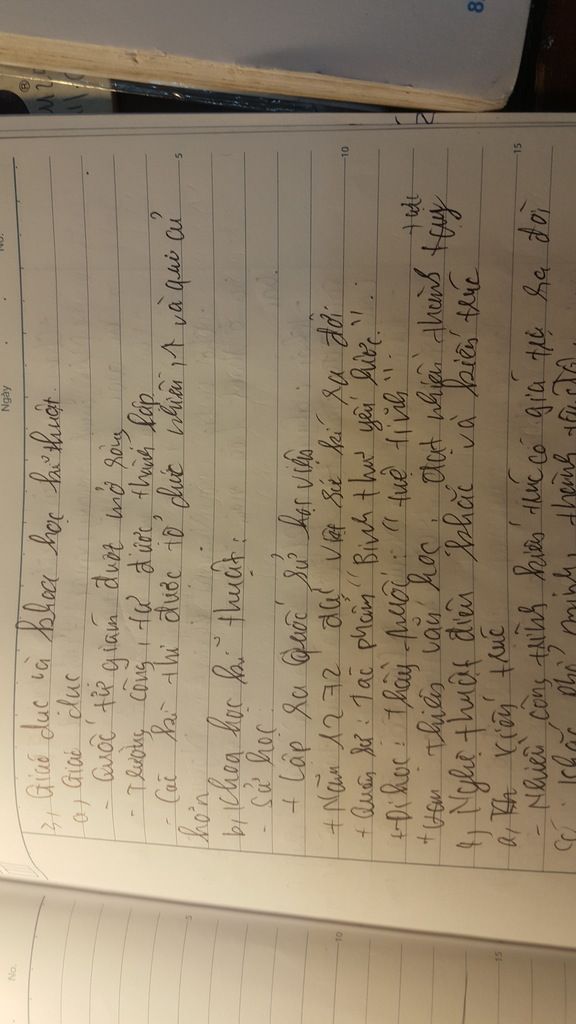 Ngày
No.
3, Giáo dục và khoa học kĩ thuật
a, Giáo dục
- Quốc tử giám được mở rộng
- Trường công, tư được thành lập
- Các kì thi được tổ chức nhiều, và qui củ
hơn
b, Khoa học kĩ thuật:
- Sử học
+ Lập ra Quốc sử học viện
+ Năm 1272 đại việt sử kí ra đời
+ Quân sự: Tác phẩm "Binh thư yếu lược".
+ Y học: Thầy thuốc "tuệ tĩnh".
+ thiên văn học: đạt nhiều thành tựu
4, Nghệ thuật điêu khắc và kiến trúc
a, kiến trúc
- Nhiều công trình kiến trúc có giá trị ra đời
5
10
15
No.
5
10
15
8